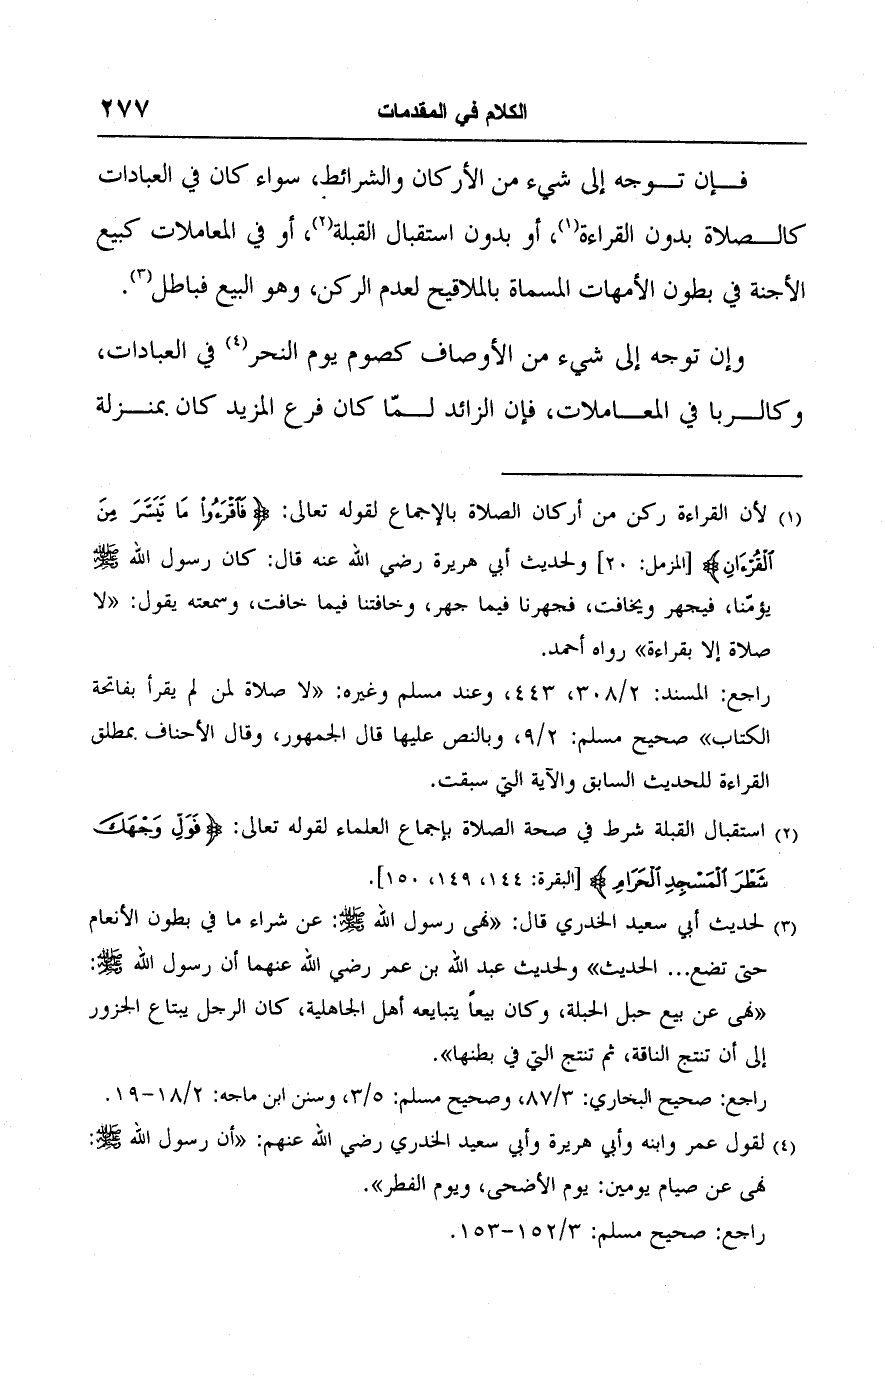 الكلام في المقدمات ٢٧٧
فإن توجه إلى شيء من الأركان والشرائط، سواء كان في العبادات
كالصلاة بدون القراءة(١)، أو بدون استقبال القبلة(٢)، أو في المعاملات كبيع
الأجنة في بطون الأمهات المسماة بالملاقيح لعدم الركن، وهو البيع فباطل(٣).
وإن توجه إلى شيء من الأوصاف كصوم يوم النحر(٤) في العبادات،
وكالربا في المعاملات، فإن الزائد لمّا كان فرع المزيد كان بمنزلة
(١) لأن القراءة ركن من أركان الصلاة بالإجماع لقوله تعالى: ﴿فَٱقْرَءُوا۟ مَا تَيَسَّرَ مِنَ
ٱلْقُرْءَانِ﴾ [المزمل: ٢٠] ولحديث أبي هريرة رضي الله عنه قال: كان رسول الله ﷺ
يؤمّنا، فيجهر ويخافت، فجهرنا فيما جهر، وخافتنا فيما خافت، وسمعته يقول: «لا
صلاة إلا بقراءة» رواه أحمد.
راجع: المسند: ٣٠٨/٢، ٤٤٣، وعند مسلم وغيره: «لا صلاة لمن لم يقرأ بفاتحة
الكتاب» صحيح مسلم: ٩/٢، وبالنص عليها قال الجمهور، وقال الأحناف بمطلق
القراءة للحديث السابق والآية التي سبقت.
(٢) استقبال القبلة شرط في صحة الصلاة بإجماع العلماء لقوله تعالى: ﴿فَوَلِّ وَجْهَكَ
شَطْرَ ٱلْمَسْجِدِ ٱلْحَرَامِ﴾ [البقرة: ١٤٤، ١٤٩، ١٥٠].
(٣) لحديث أبي سعيد الخدري قال: «نهى رسول الله ﷺ: عن شراء ما في بطون الأنعام
حتى تضع... الحديث» ولحديث عبد الله بن عمر رضي الله عنهما أن رسول الله ﷺ:
«نهى عن بيع حبل الحبلة، وكان بيعاً يتبايعه أهل الجاهلية، كان الرجل يبتاع الجزور
إلى أن تنتج الناقة، ثم تنتج التي في بطنها».
راجع: صحيح البخاري: ٨٧/٣، وصحيح مسلم: ٣/٥، وسنن ابن ماجه: ١٨/٢-١٩.
(٤) لقول عمر وابنه وأبي هريرة وأبي سعيد الخدري رضي الله عنهم: «أن رسول الله ﷺ:
نهى عن صيام يومين: يوم الأضحى، ويوم الفطر».
راجع: صحيح مسلم: ١٥٢/٣-١٥٣.